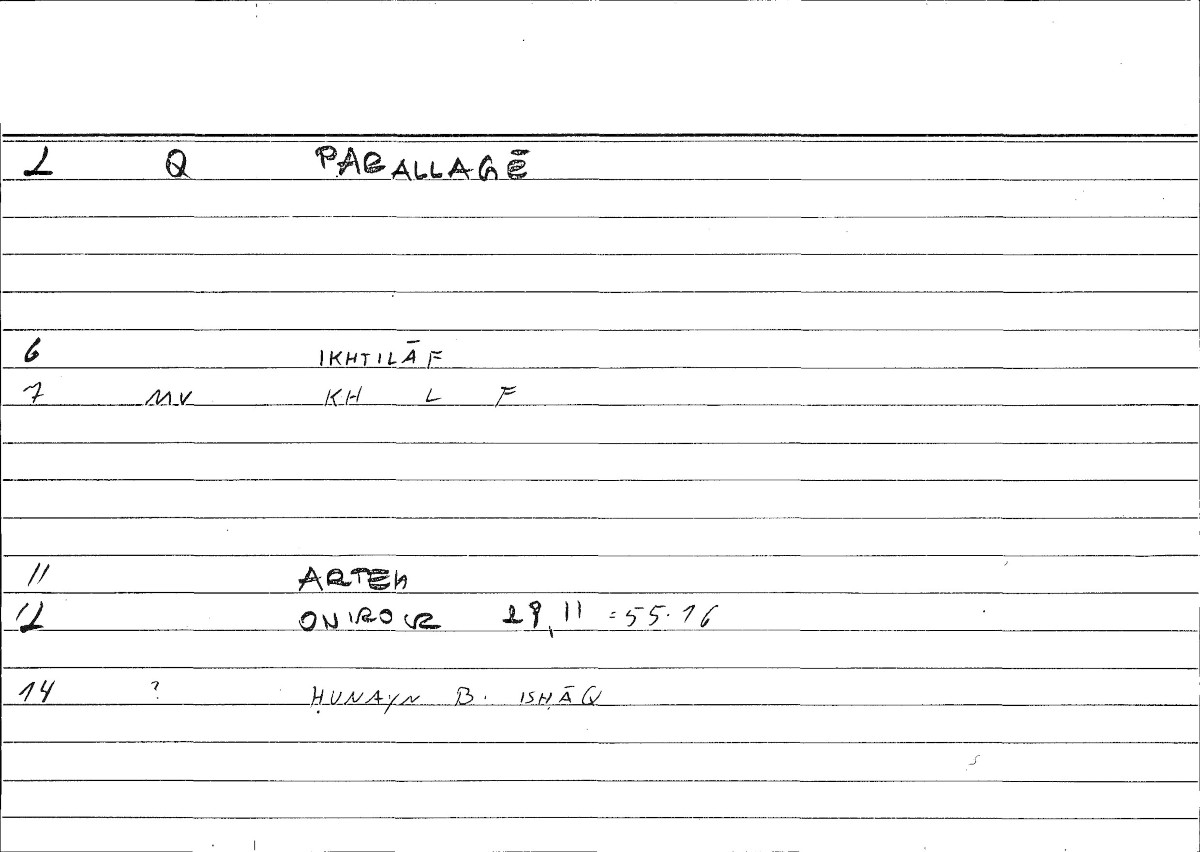 2 Q PARALLAGĒ
6 IKHTILĀF
7 MV KH L F
11 ARTEM
12 ONIROCR 29,11 = 55.16
14 ? ḤUNAYN B. ISḤĀQ